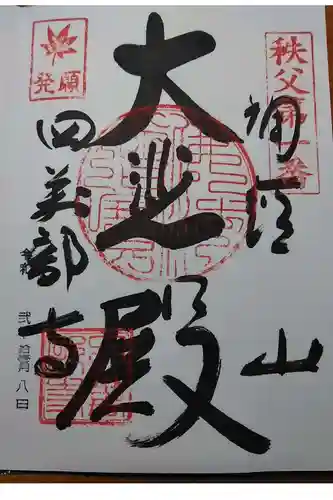 秩父第一番
誦経山
大悲殿
発願
四萬部寺
八日